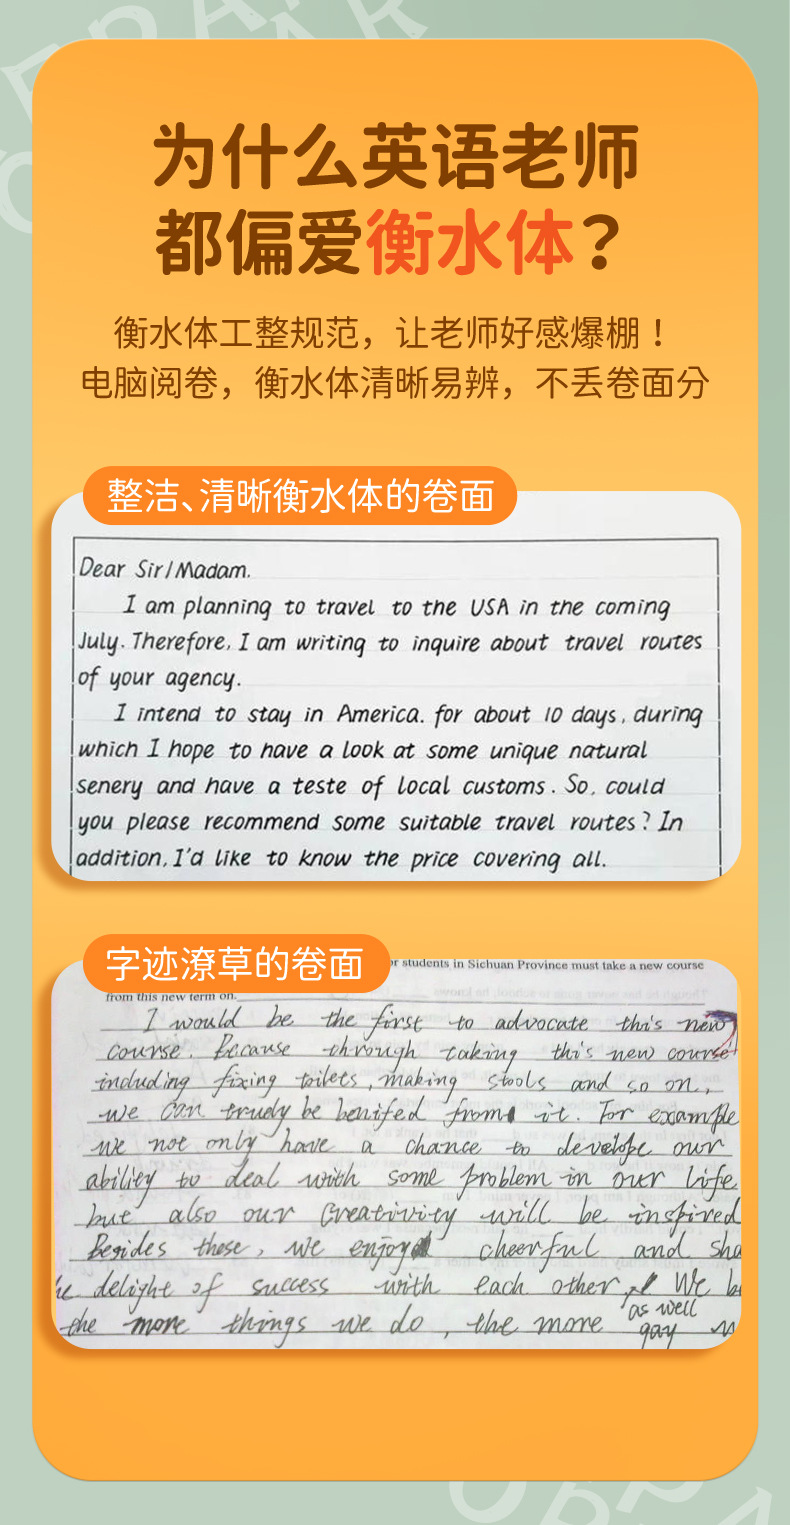 为什么英语老师
都偏爱衡水体？
衡水体工整规范，让老师好感爆棚！
电脑阅卷，衡水体清晰易辨，不丢卷面分
整洁、清晰衡水体的卷面
Dear Sir/Madam.
I am planning to travel to the USA in the coming
July. Therefore, I am writing to inquire about travel routes
of your agency.
I intend to stay in America. for about 10 days, during
which I hope to have a look at some unique natural
senery and have a teste of local customs. So, could
you please recommend some suitable travel routes? In
addition, I'd like to know the price covering all.
字迹潦草的卷面
or students in Sichuan Province must take a new course
from this new term on.
I would be the first to advocate this new
course. Because through taking this new course
including fixing toilets, making stools and so on,
we can truely be benifed from it. For example
we not only have a chance to develope our
ability to deal with some problem in our life
but also our creativity will be inspired
Besides these, we enjoy cheerful and sha
he delight of success with each other, We b
as well
the more things we do, the more gay